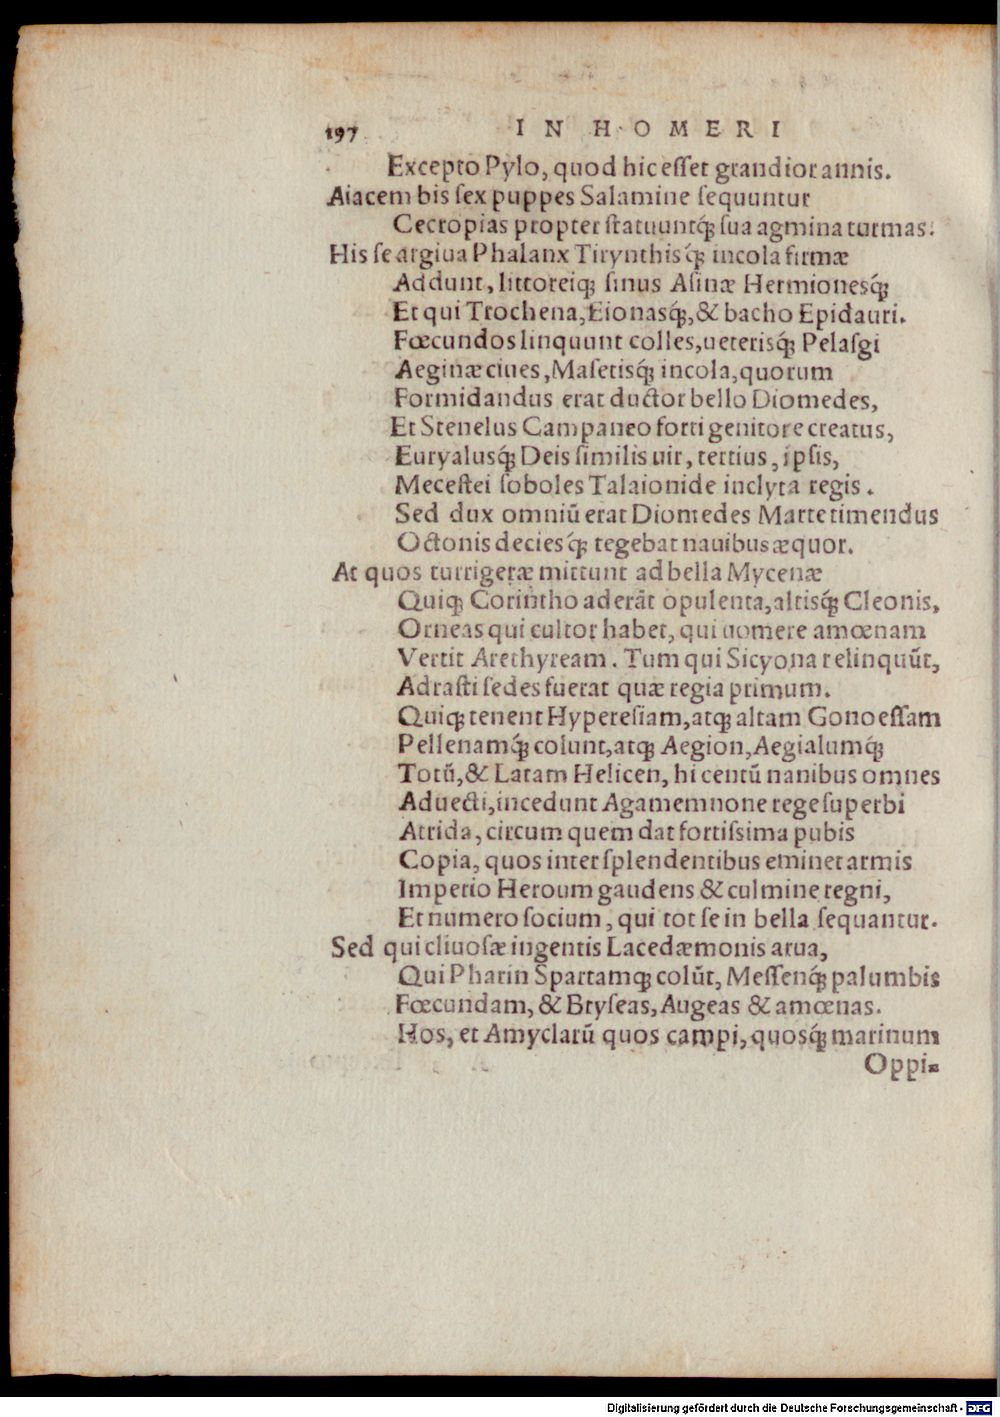 197 IN HOMERI
Excepto Pylo, quod hic esset grandior annis.
Aiacem bis ſex puppes Salamine ſequuntur
Cecropias propter ſtatuuntq́; ſua agmina turmas.
His ſe argiua Phalanx Tirynthisq́; incola firmæ
Addunt, littoreiq; ſinus Aſinæ Hermionesq́;
Et qui Trochena, Eionasq́;, & bacho Epidauri.
Fœcundos linquunt colles, ueterisq́; Pelaſgi
Aeginæ ciues, Maſetisq́; incola, quorum
Formidandus erat ductor bello Diomedes,
Et Stenelus Campaneo forti genitore creatus,
Euryalusq́; Deis ſimilis uir, tertius, ipſis,
Meceſtei ſoboles Talaionide inclyta regis.
Sed dux omniũ erat Diomedes Marte timendus
Octonis decies q́; tegebat nauibus æquor.
At quos turrigeræ mittunt ad bella Mycenæ
Quiq; Corintho aderãt opulenta, altisq́; Cleonis,
Orneas qui cultor habet, qui uomere amœnam
Vertit Arethyream. Tum qui Sicyona relinquũt,
Adraſti ſedes fuerat quæ regia primum.
Quiq; tenent Hypereſiam, atq; altam Gonoeſſam
Pellenamq́; colunt, atq; Aegion, Aegialumq́;
Totũ, & Latam Helicen, hi centũ nanibus omnes
Aduecti, incedunt Agamemnone rege ſuperbi
Atrida, circum quem dat fortiſsima pubis
Copia, quos inter ſplendentibus eminet armis
Imperio Heroum gaudens & culmine regni,
Et numero ſocium, qui tot ſe in bella ſequantur.
Sed qui cliuoſæ ingentis Lacedæmonis arua,
Qui Pharin Spartamq; colũt, Meſſenq́; palumbis
Fœcundam, & Bryſeas, Augeas & amœnas.
Hos, et Amyclarũ quos campi, quosq́; marinum
Oppi-
Digitalisierung gefördert durch die Deutsche Forschungsgemeinschaft - DFG